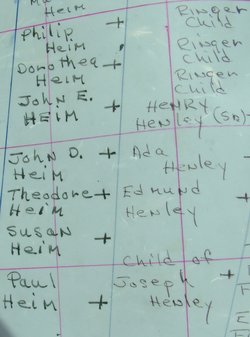 Heim
Philip +
Heim
Dorothea +
Heim
John E. +
Heim
John D. +
Heim
Theodore +
Heim
Susan +
Heim
Paul +
Heim
Ringer
Child
Ringer
Child
Ringer
Child
HENRY
Henley (SR)
Ada
Henley
Edmund +
Henley
Child of
Joseph +
Henley